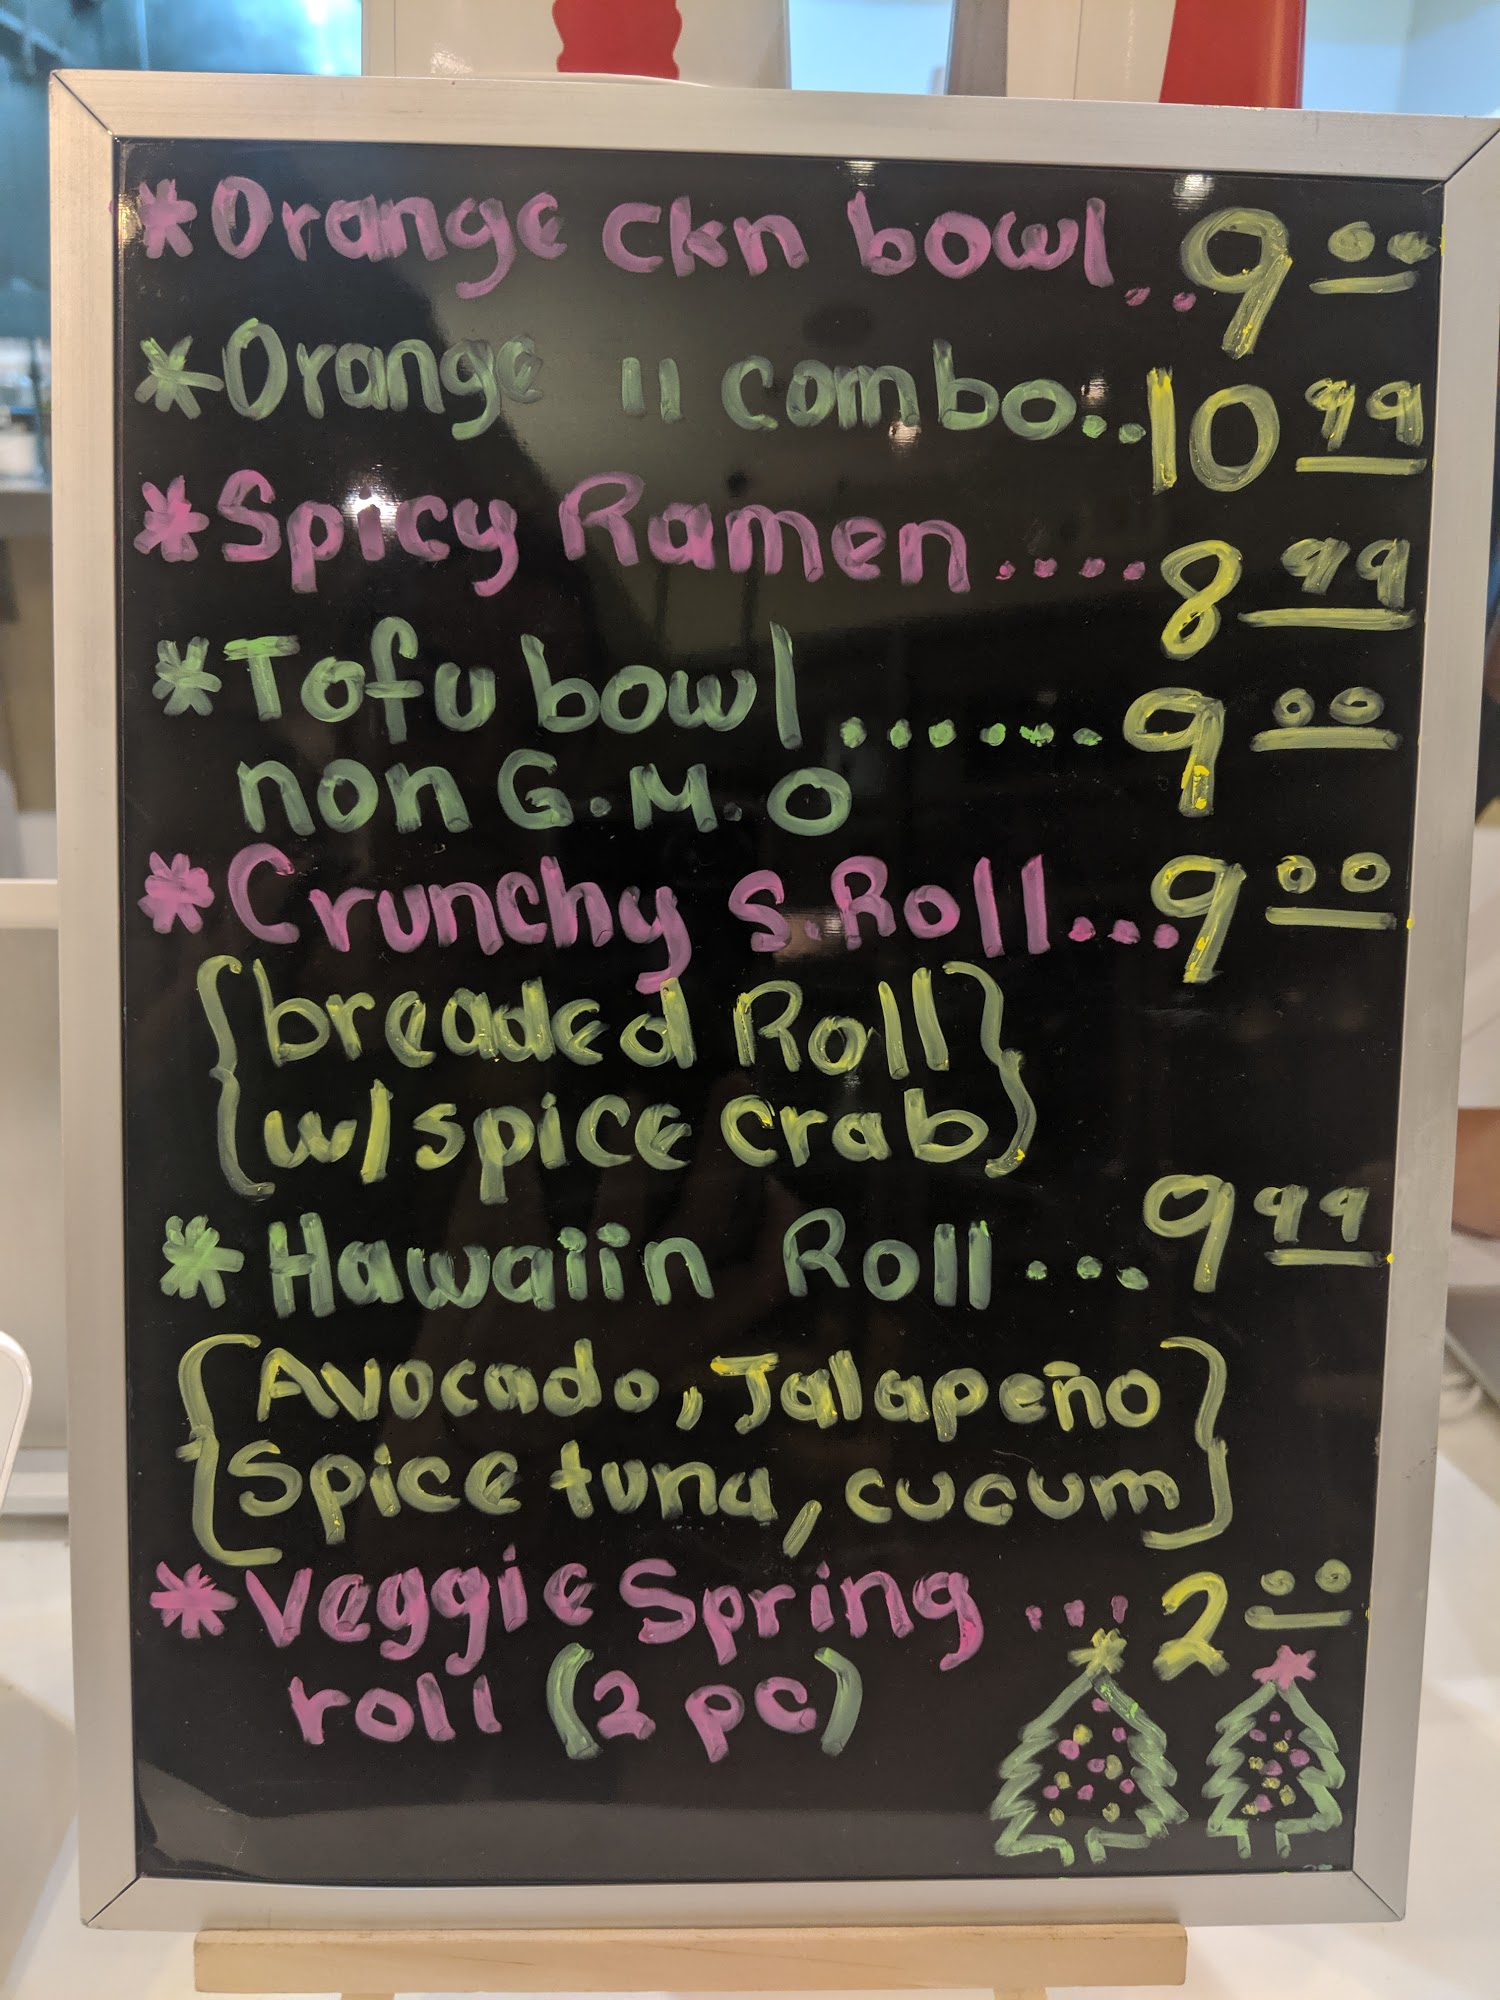 *Orange ckn bowl.. 9 00
*Orange " combo.. 10 99
*Spicy Ramen.... 8 99
*Tofu bowl...... 9 00
non G.M.O
*Crunchy S.Roll... 9 00
{breaded Roll
w/spice crab}
*Hawaiin Roll ... 9 99
{Avocado, Jalapeño
Spice tuna, cucum}
*Veggie Spring ... 2 00
roll (2 pc)